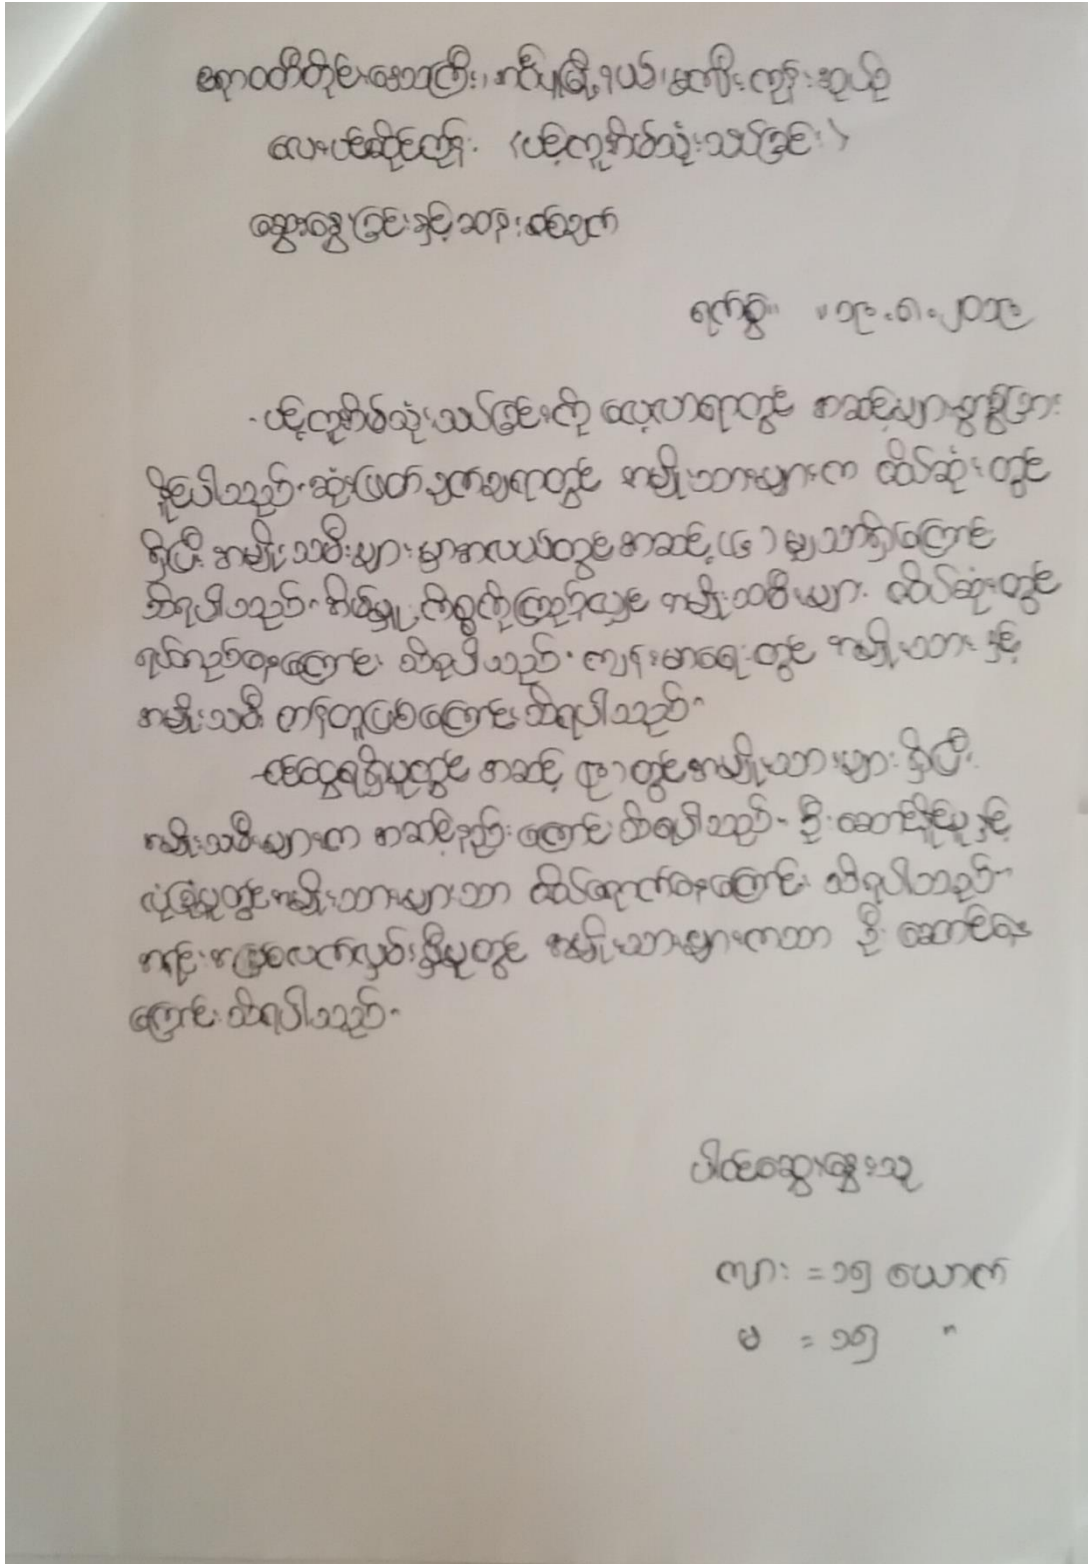 ဧရာဝတီတိုင်းဒေသကြီး၊ အင်္ဂပူမြို့နယ်၊ မကျီးကုန်းအုပ်စု
လေးပင်ဆိုင်ကုန်း (ပင့်ကူအိမ်သုံးသပ်ခြင်း)
ဆွေးနွေးခြင်းနှင့်ဆန်းစစ်ချက်
ရက်စွဲ။ ။ ၁၉.၆.၂၀၁၉
ပင့်ကူအိမ်သုံးသပ်ခြင်းကို လေ့လာရာတွင် အဆင့်များကွဲပြား
နိုင်ပါသည်။ ဆုံးဖြတ်ချက်ချရာတွင် အမျိုးသားများက ထိပ်ဆုံးတွင်
ရှိပြီး အမျိုးသမီးများမှာအလယ်တွင် အဆင့် (၆) မျှသာရှိကြောင်း
သိရပါသည်။ အိမ်မှုကိစ္စကိုကြည့်လျှင် အမျိုးသမီးများ ထိပ်ဆုံးတွင်
ရပ်တည်နေကြောင်း သိရပါသည်။ ကျန်းမာရေးတွင် အမျိုးသား နှင့်
အမျိုးသမီး တန်းတူဖြစ်ကြောင်းသိရပါသည်။
ငွေရရှိမှုတွင် အဆင့် (၉) တွင်အမျိုးသားများ ရှိပြီး
အမျိုးသမီးများက အဆင့်နည်းကြောင်းသိရပါသည်။ ဦးဆောင်နိုင်မှုနှင့်
လုံခြုံမှုတွင်အမျိုးသားများသာ ထိပ်ရောက်နေကြောင်း သိရပါသည်။
အရင်းအမြစ်လက်လှမ်းမှီမှုတွင် အမျိုးသားများကသာ ဦးဆောင်နေ
ကြောင်းသိရပါသည်။
ပါဝင်ဆွေးနွေးသူ
ကျား = ၁၅ ယောက်
မ = ၁၅ "